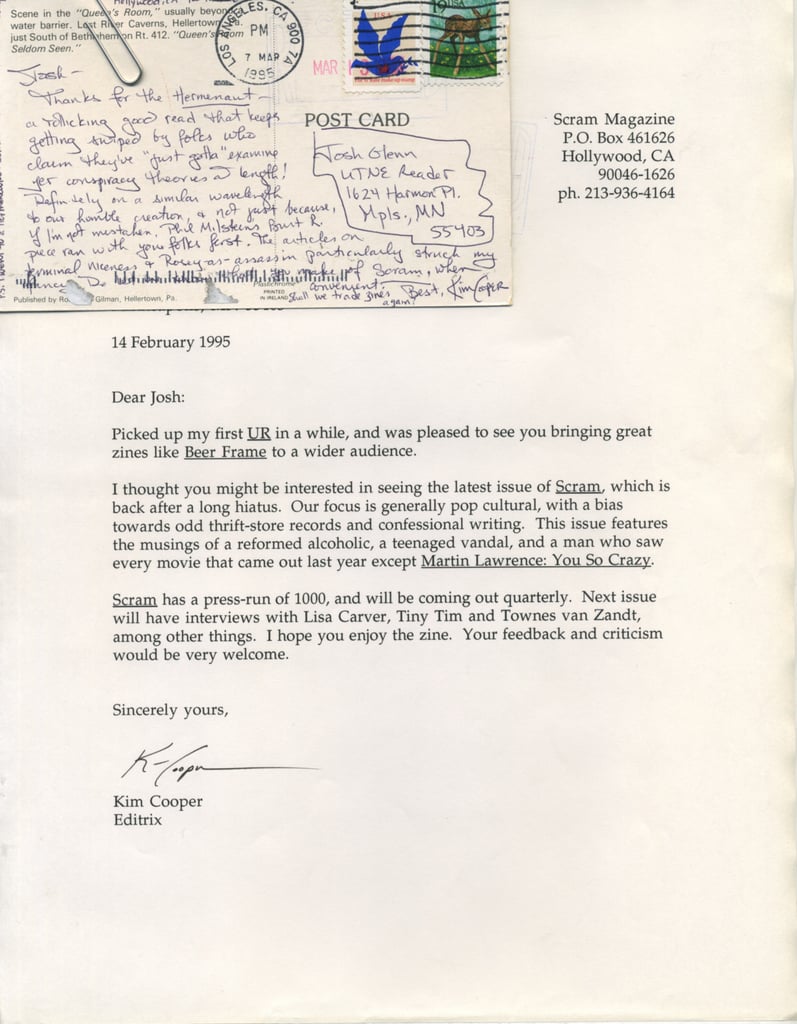 Scene in the "Queen's Room," usually beyond
water barrier. Lost River Caverns, Hellertown, Pa.
just South of Bethlehem on Rt. 412. "Queen's Room
Seldom Seen."
LOS ANGELES, CA 900 7A
PM
7 MAR
1995
MAR
USA
19 USA
Josh –
Thanks for the Hermenaut –
a rollicking good read that keeps
getting swiped by folks who
claim they've "just gotta" examine
yer conspiracy theories @ length!
Definitely on a similar wavelength
to our humble creation, & not just because,
if I'm not mistaken, Phil Milstein's Burt R.
piece ran with your folks first. The articles on
terminal niceness & Rosey-as-assassin particularly struck my
make of Scram, when
convenient. Best, Kim Cooper
Shall we trade zines
again?
POST CARD
Josh Glenn
UTNE Reader
1624 Harmon Pl.
Mpls., MN
55403
Plastichrome
PRINTED
IN IRELAND
Published by Gilman, Hellertown, Pa.
Scram Magazine
P.O. Box 461626
Hollywood, CA
90046-1626
ph. 213-936-4164
14 February 1995
Dear Josh:
Picked up my first UR in a while, and was pleased to see you bringing great
zines like Beer Frame to a wider audience.
I thought you might be interested in seeing the latest issue of Scram, which is
back after a long hiatus. Our focus is generally pop cultural, with a bias
towards odd thrift-store records and confessional writing. This issue features
the musings of a reformed alcoholic, a teenaged vandal, and a man who saw
every movie that came out last year except Martin Lawrence: You So Crazy.
Scram has a press-run of 1000, and will be coming out quarterly. Next issue
will have interviews with Lisa Carver, Tiny Tim and Townes van Zandt,
among other things. I hope you enjoy the zine. Your feedback and criticism
would be very welcome.
Sincerely yours,
K Cooper
Kim Cooper
Editrix